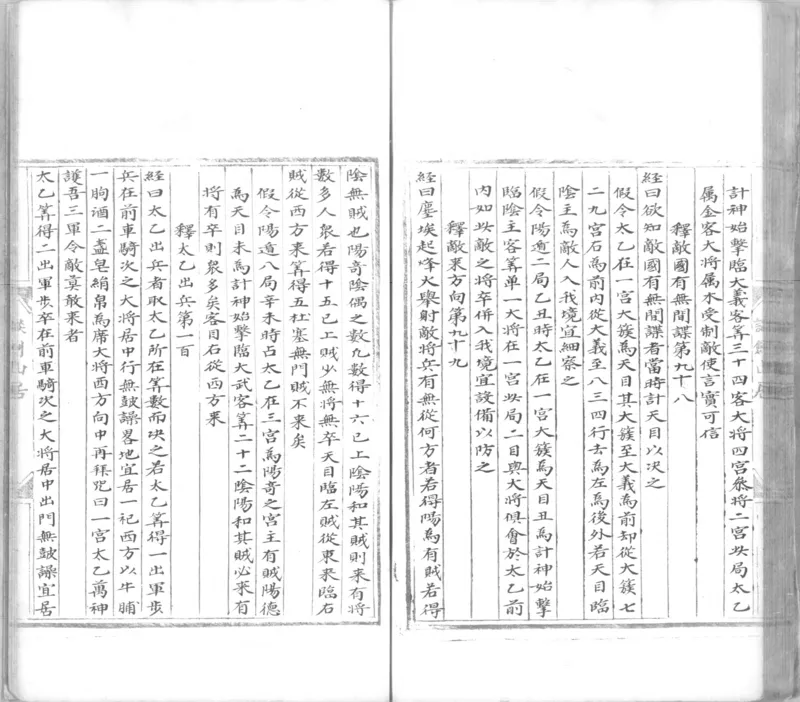 計神始擊臨大義客筭三十四客大將四宮叅將二宮此局太乙
属金客大將属木受制敵使言實可信
釋敵國有無間諜第九十八
経曰欲知敵國有無間諜者當時計天目以决之
假令太乙在一宮大簇為天目其大簇至大義為前却從大簇七
二九宮右為前内從大義至八三四行去為左為後外若天目臨
陰主為敵人入我境宜細察之
假令陽遁二局乙丑時太乙在一宮大簇為天目丑為計神始擊
臨陰主客筭單一大將在一宮此局二目與大將俱會於太乙前
内如此敵之將卒併入我境宜設備以防之
釋敵来方向第九十九
経曰塵埃起烽火舉射敵將兵有無從何方者若得陽為有賊若得
陰無賊也陽奇陰偶之數九數得十六已上陰陽和其賊則来有將
數多人衆若得十五已上賊必無將無卒天目臨左賊從東来臨右
賊從西方来筭得五杜塞無門賊不来矣
假令陽遁八局辛未時占太乙在三宮為陽奇之宮主有賊陽德
為天目未為計神始擊臨大武客筭二十二陰陽和其賊必来有
將有卒則衆多矣客目右從西方来
釋太乙出兵第一百
経曰太乙出兵者取太乙所在筭數而决之若太乙筭得一出軍步
兵在前車騎次之大將居中行無鼓譟畧地宜居一祀西方以牛脯
一朐酒二盞皂絹帛為席大將西方向中再拜咒曰一宮太乙萬神
護吾三軍令敵莫敢来者
太乙筭得二出軍步卒在前軍騎次之大將居中出門無鼓譟宜居